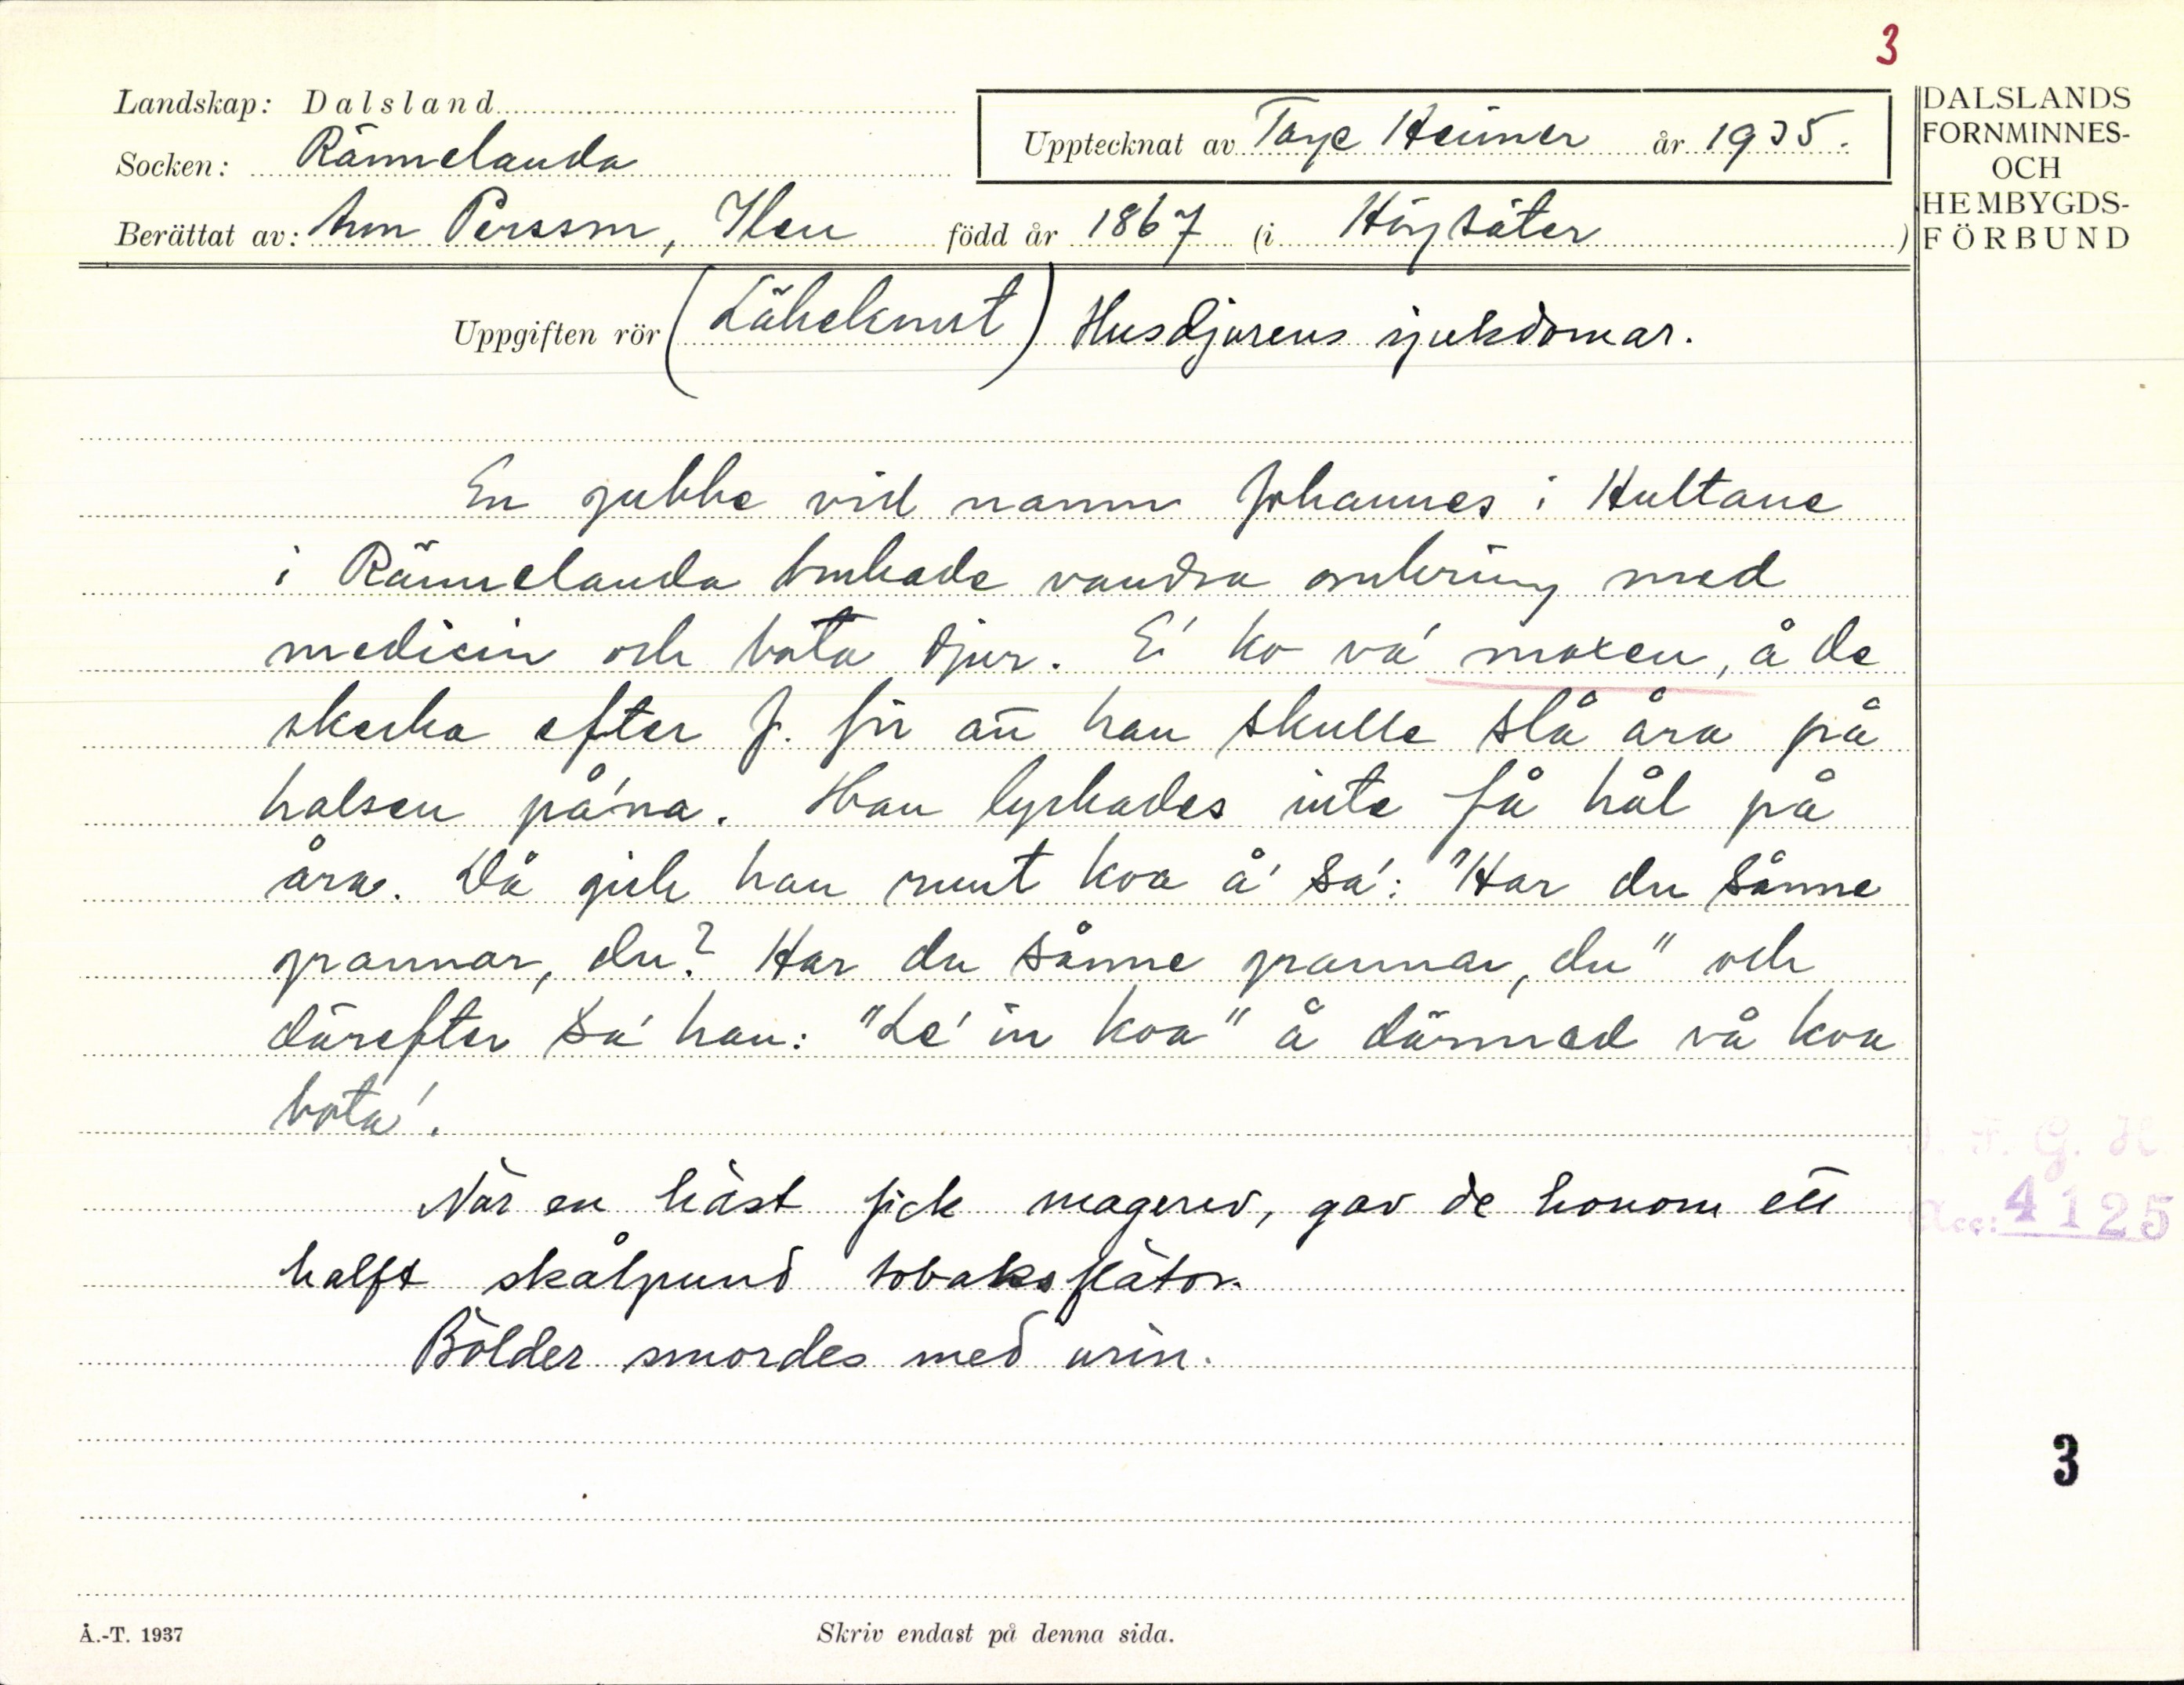 3
Landskap: Dalsland
Socken: Rännelanda
Upptecknat av Tage Heimer år 1935.
Berättat av: Persson, Hen född år 1867 (i Högsäter)
DALSLANDS
FORNMINNES-
OCH
HEMBYGDS-
FÖRBUND
Uppgiften rör (Läkekonst) Husdjurens sjukdomar.
En gubbe vid namn Johannes i Hultane
i Rännelanda brukade vandra omkring med
medicin och bota djur. E' ko va' moxen, å de
skecka efter J. för att han skulle slå åra på
halsen på'na. Han lyckades inte få hål på
åra. Då gick han runt koa å' sa': "Har du sånne
grannar, du? Har du sånne grannar, du" och
därefter sa' han: "Le' in koa" å därmed vå koa
bota'.
När en häst fick magerev, gav de honom ett
halft skålpund tobaksflätor.
Bölder smordes med urin.
F. G. H
Acc: 4125
3
Å.-T. 1937
Skriv endast på denna sida.